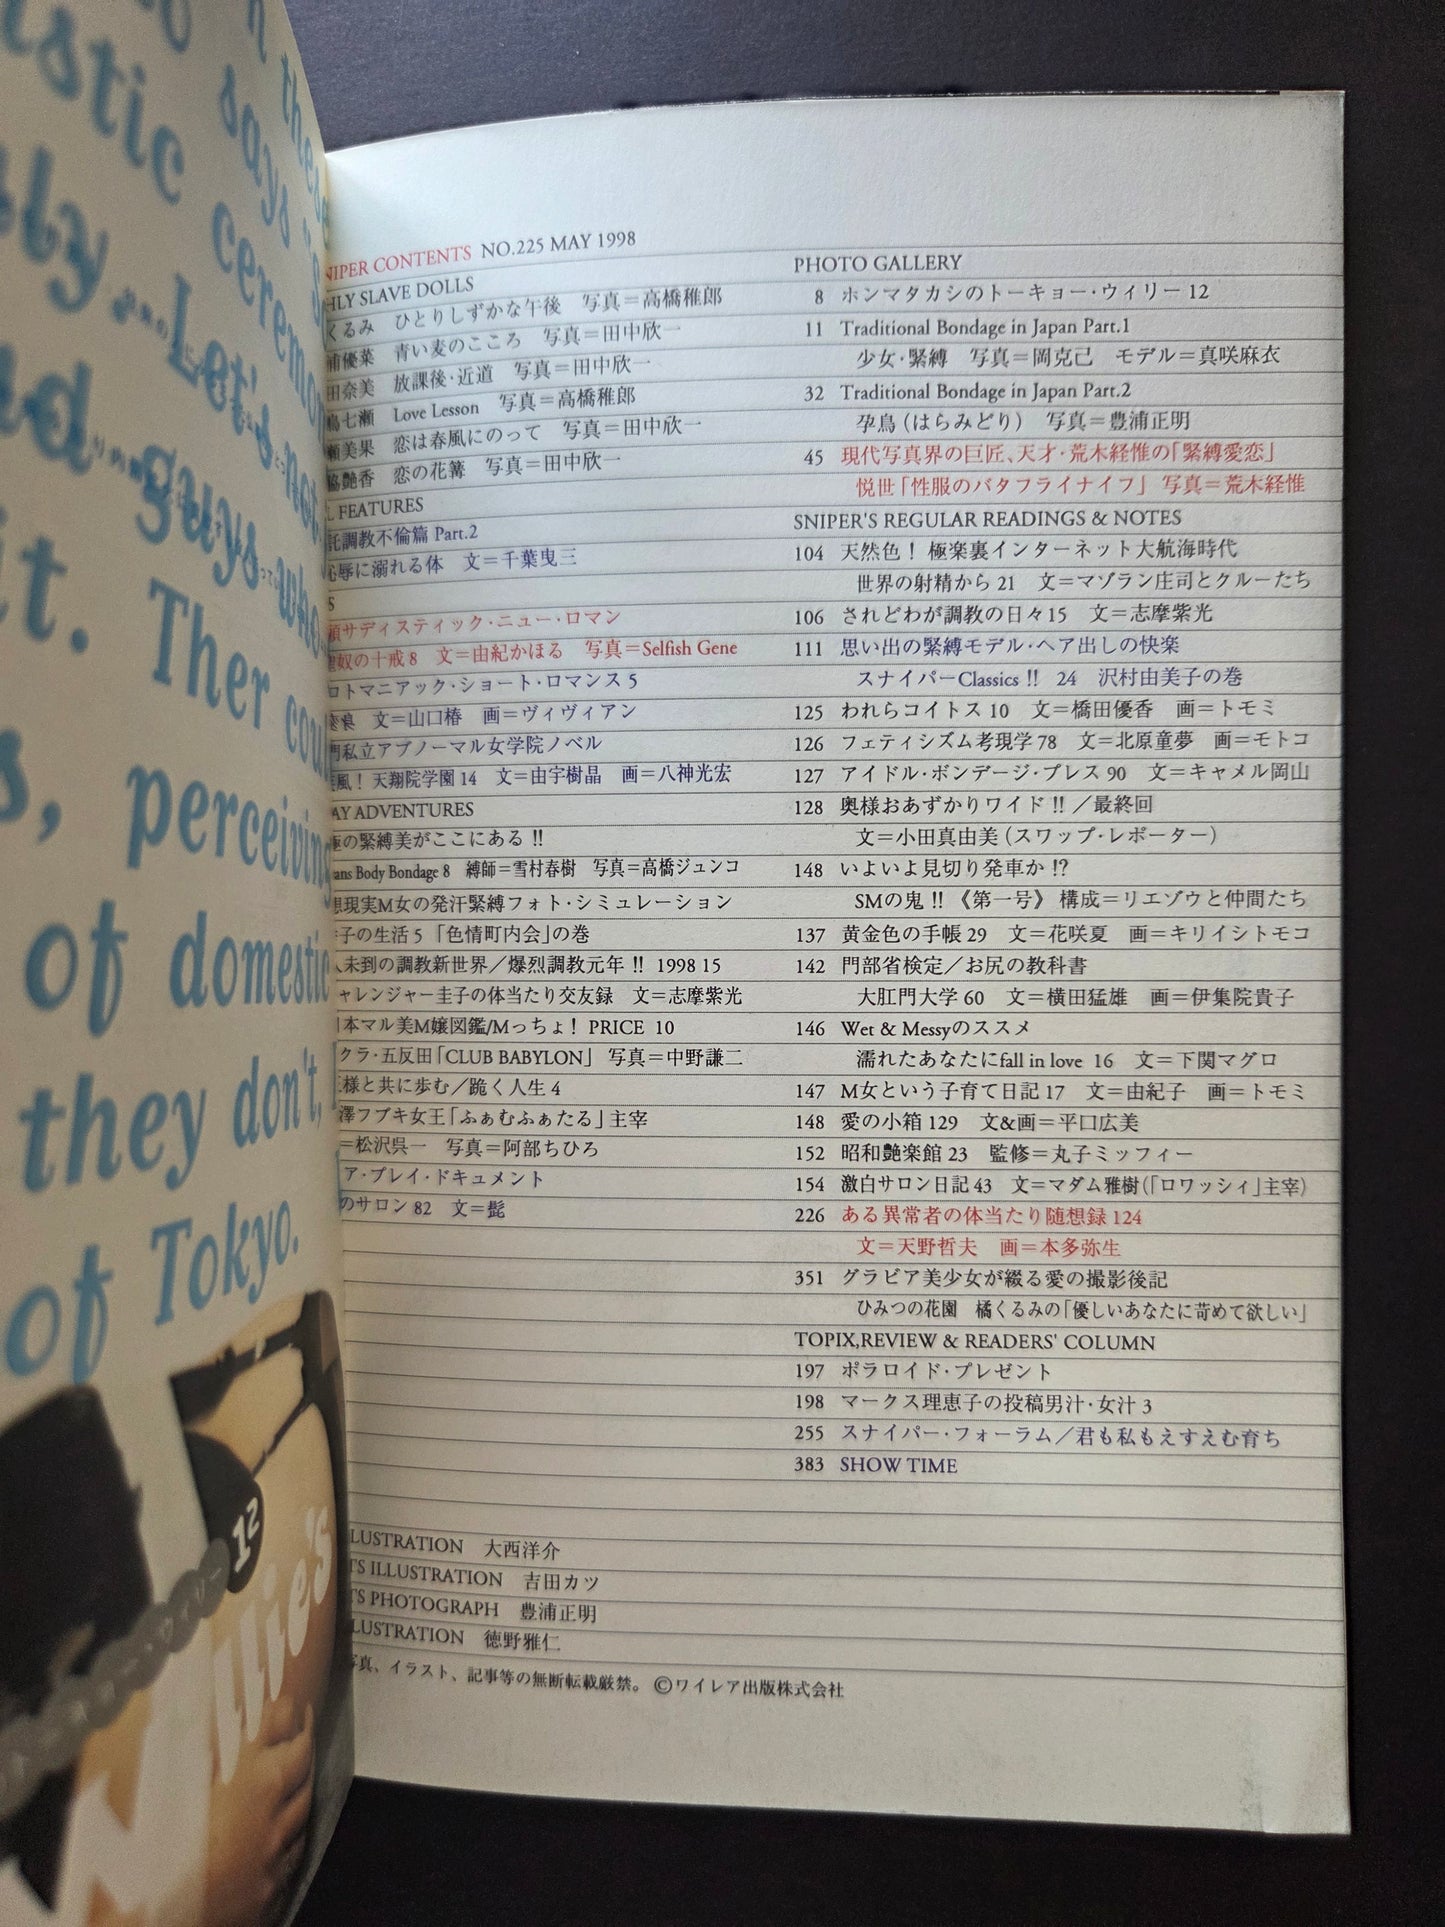 these
says
ceremon
Let's not
guys who
it. Ther coul
s, perceiving
of domestic
they don't,
of Tokyo.
12
NIPER CONTENTS NO.225 MAY 1998
HLY SLAVE DOLLS
くるみ ひとりしずかな午後 写真＝高橋稚郎
浦優菜 青い麦のこころ 写真＝田中欣一
田奈美 放課後・近道 写真＝田中欣一
七瀬 Love Lesson 写真＝高橋稚郎
美果 恋は春風にのって 写真＝田中欣一
艶香 恋の花篝 写真＝田中欣一
L FEATURES
託調教不倫篇 Part.2
恥辱に溺れる体 文＝千葉曳三
S
サディスティック・ニュー・ロマン
奴の十戒 8 文＝由紀かほる 写真＝Selfish Gene
ロトマニアック・ショート・ロマンス 5
文＝山口椿 画＝ヴィヴィアン
門私立アブノーマル女学院ノベル
風！ 天翔院学園 14 文＝由宇樹晶 画＝八神光宏
AY ADVENTURES
極の緊縛美がここにある !!
ans Body Bondage 8 縛師＝雪村春樹 写真＝高橋ジュンコ
想現実M女の発汗緊縛フォト・シミュレーション
子の生活 5 「色情町内会」の巻
人未到の調教新世界／爆烈調教元年 !! 1998 15
ャレンジャー圭子の体当たり交友録 文＝志摩紫光
本マル美M嬢図鑑/Mっちょ！ PRICE 10
クラ・五反田「CLUB BABYLON」 写真＝中野謙二
様と共に歩む／跪く人生 4
澤フブキ女王「ふぁむふぁたる」主宰
＝松沢呉一 写真＝阿部ちひろ
ア・プレイ・ドキュメント
のサロン 82 文＝髭
LUSTRATION 大西洋介
TS ILLUSTRATION 吉田カツ
TS PHOTOGRAPH 豊浦正明
LLUSTRATION 徳野雅仁
写真、イラスト、記事等の無断転載厳禁。 ©ワイレア出版株式会社
PHOTO GALLERY
8 ホンマタカシのトーキョー・ウィリー 12
11 Traditional Bondage in Japan Part.1
少女・緊縛 写真＝岡克己 モデル＝真咲麻衣
32 Traditional Bondage in Japan Part.2
孕鳥（はらみどり） 写真＝豊浦正明
45 現代写真界の巨匠、天才・荒木経惟の「緊縛愛恋」
悦世「性服のバタフライナイフ」 写真＝荒木経惟
SNIPER'S REGULAR READINGS & NOTES
104 天然色！ 極楽裏インターネット大航海時代
世界の射精から 21 文＝マゾラン庄司とクルーたち
106 されどわが調教の日々 15 文＝志摩紫光
111 思い出の緊縛モデル・ヘア出しの快楽
スナイパーClassics !! 24 沢村由美子の巻
125 われらコイトス 10 文＝橋田優香 画＝トモミ
126 フェティシズム考現学 78 文＝北原童夢 画＝モトコ
127 アイドル・ボンデージ・プレス 90 文＝キャメル岡山
128 奥様おあずかりワイド !! ／最終回
文＝小田真由美（スワップ・レポーター）
148 いよいよ見切り発車か !?
SMの鬼 !! 《第一号》 構成＝リエゾウと仲間たち
137 黄金色の手帳 29 文＝花咲夏 画＝キリイシトモコ
142 門部省検定／お尻の教科書
大肛門大学 60 文＝横田猛雄 画＝伊集院貴子
146 Wet & Messyのススメ
濡れたあなたにfall in love 16 文＝下関マグロ
147 M女という子育て日記 17 文＝由紀子 画＝トモミ
148 愛の小箱 129 文&画＝平口広美
152 昭和艶楽館 23 監修＝丸子ミッフィー
154 激白サロン日記 43 文＝マダム雅樹（「ロワッシィ」主宰）
226 ある異常者の体当たり随想録 124
文＝天野哲夫 画＝本多弥生
351 グラビア美少女が綴る愛の撮影後記
ひみつの花園 橘くるみの「優しいあなたに苛めて欲しい」
TOPIX,REVIEW & READERS' COLUMN
197 ポラロイド・プレゼント
198 マークス理恵子の投稿男汁・女汁 3
255 スナイパー・フォーラム／君も私もえすえむ育ち
383 SHOW TIME